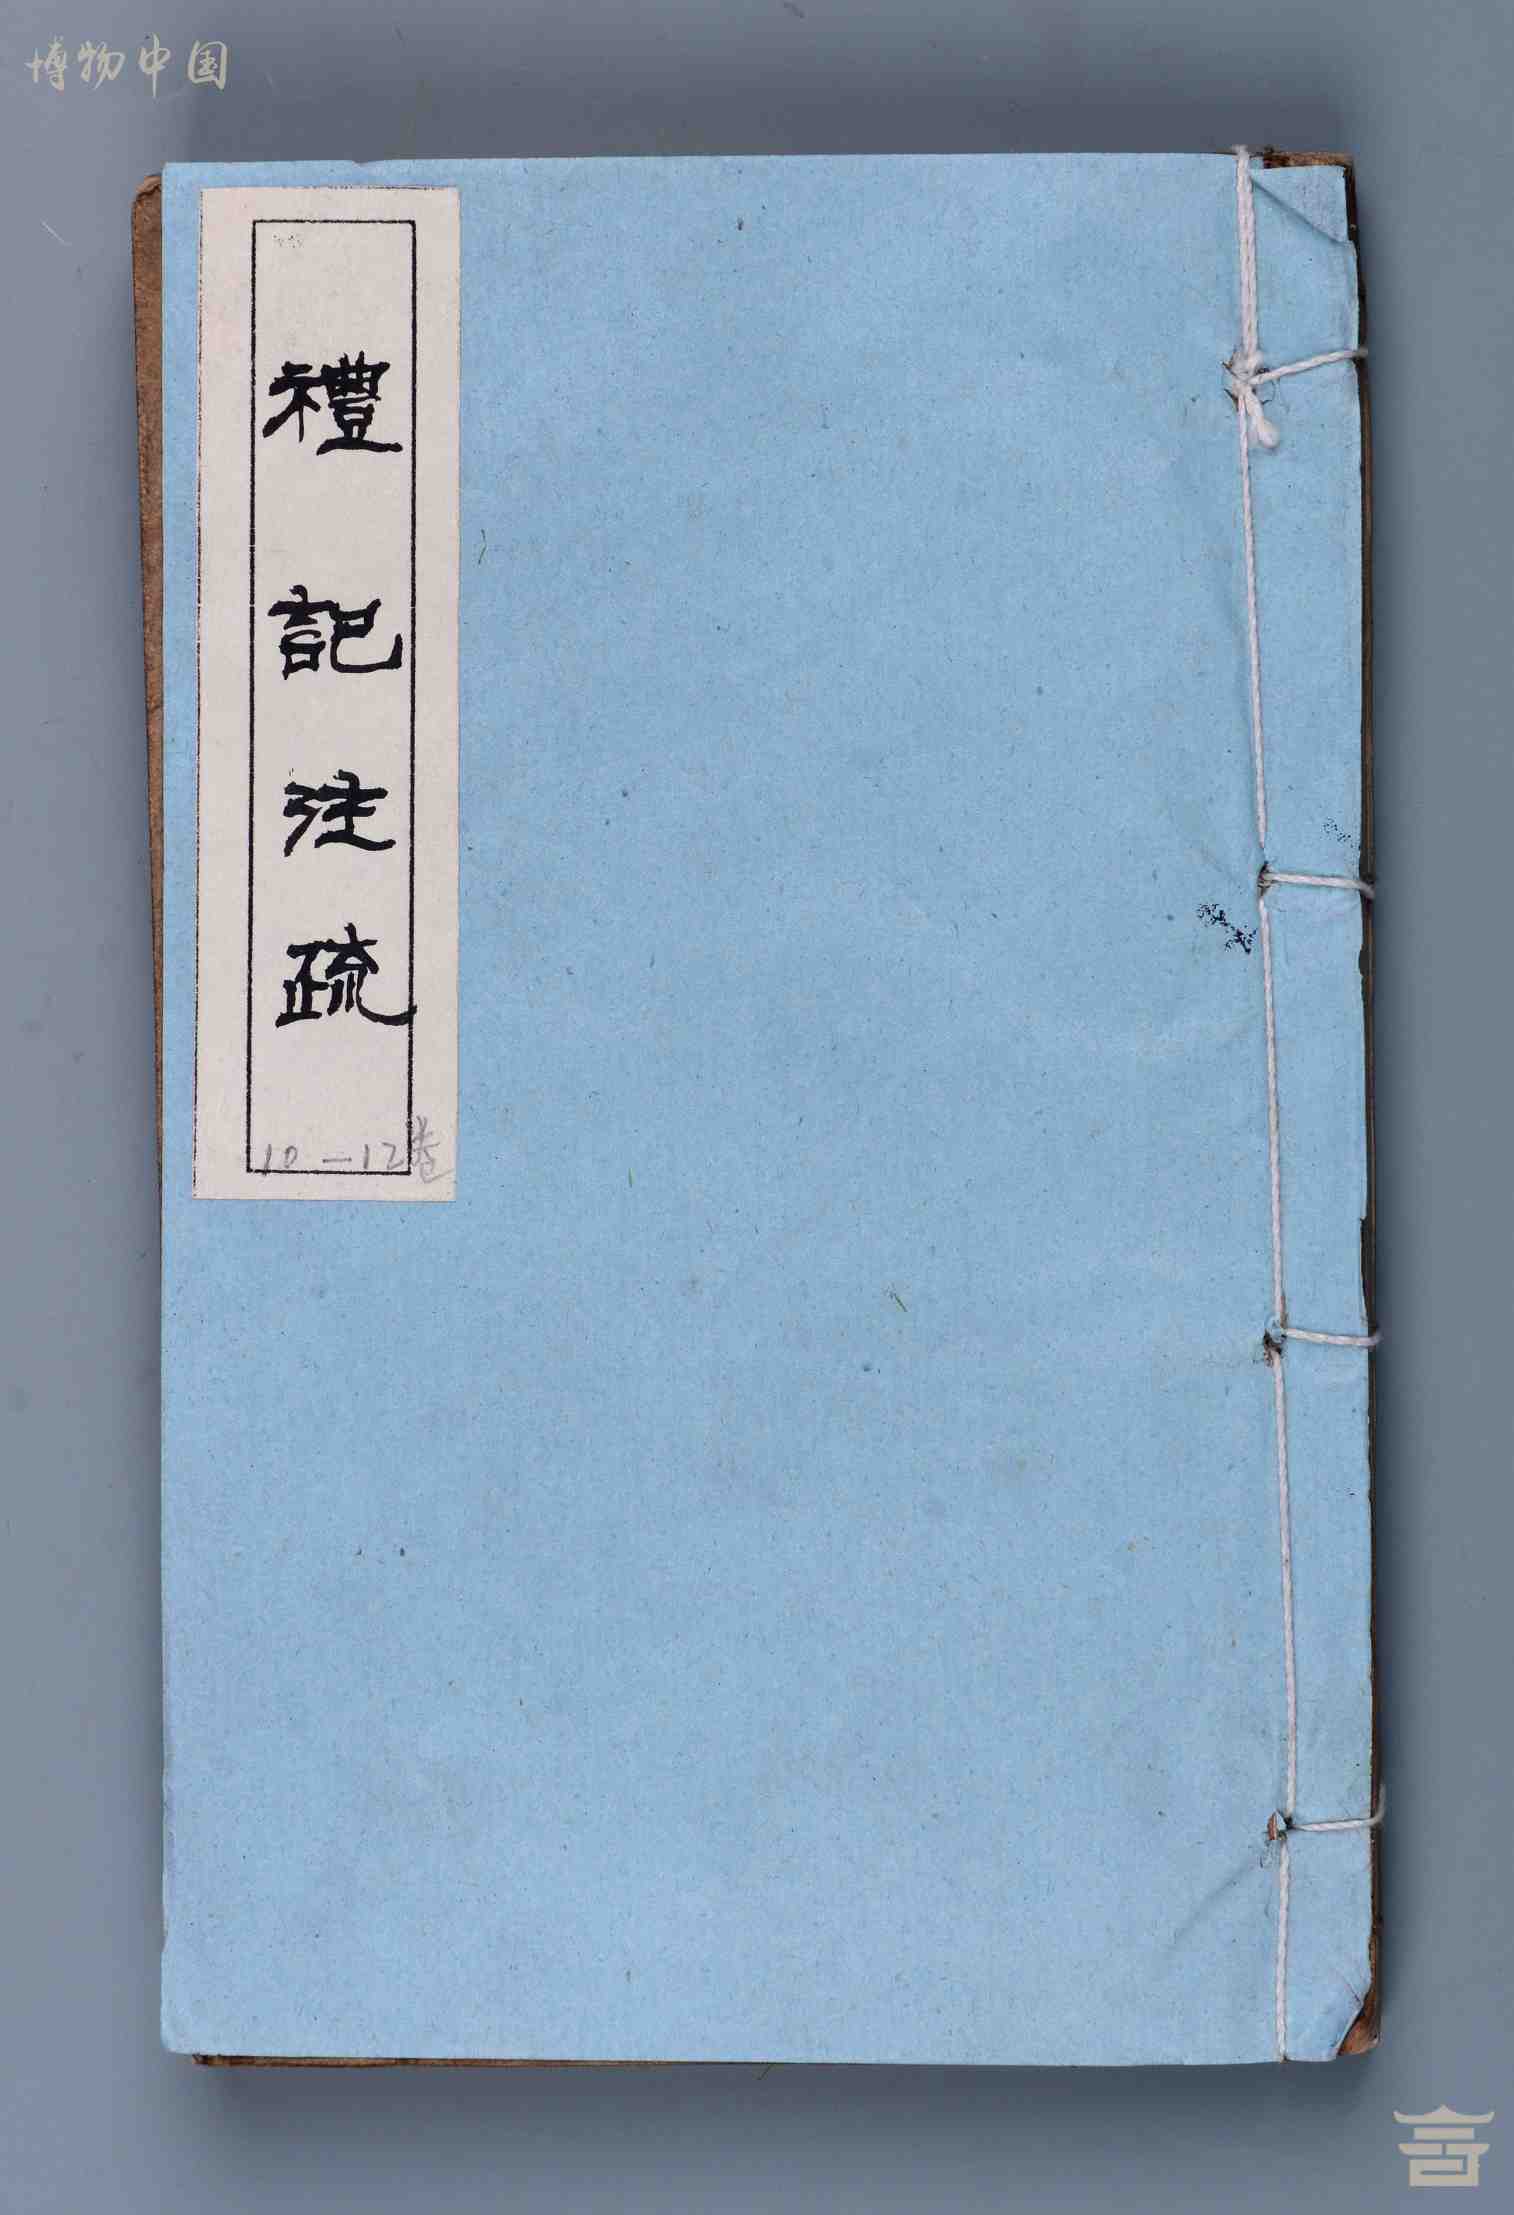 博物中国
禮記注疏
10-12卷